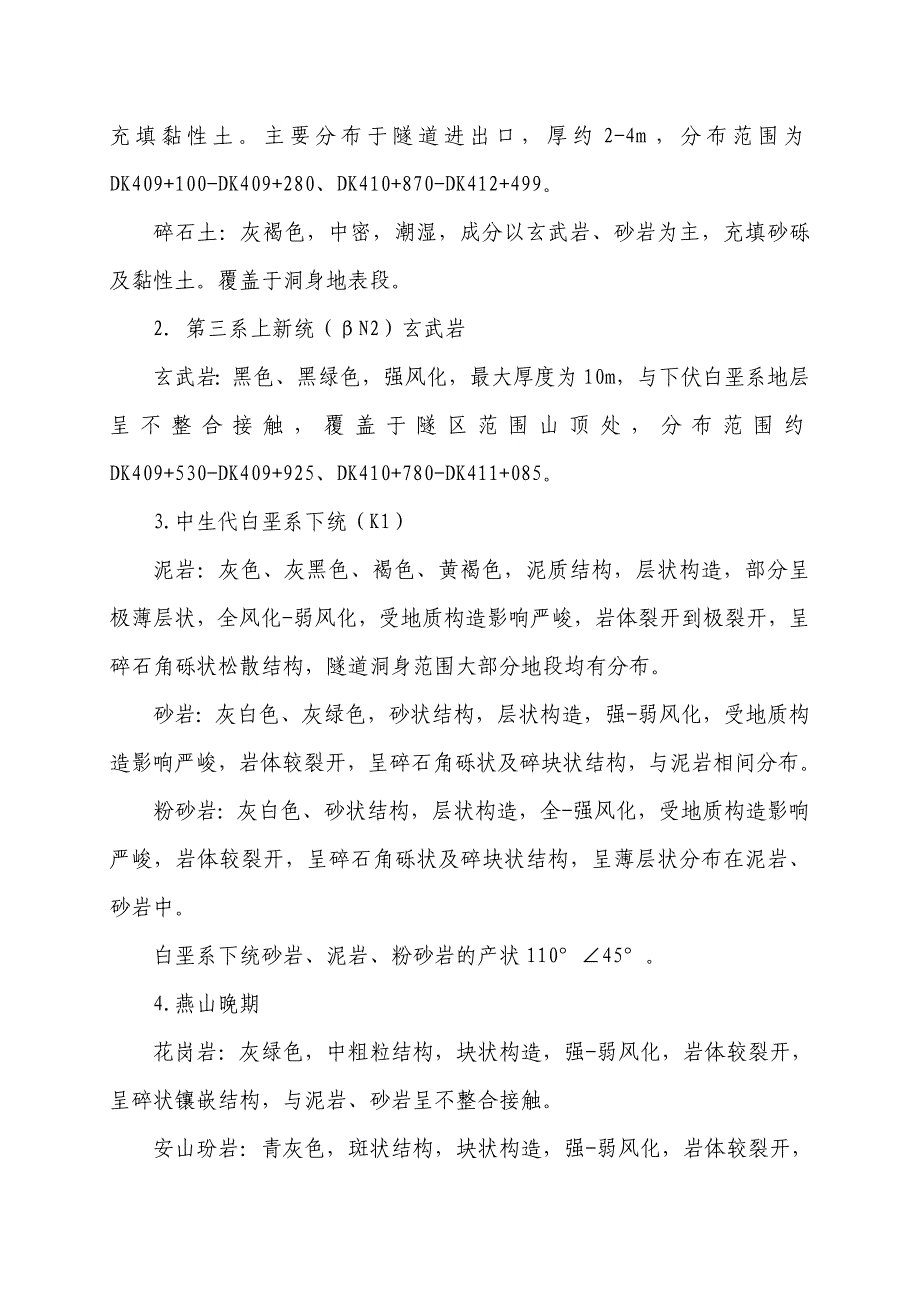 充填黏性土。主要分布于隧道进出口，厚约 2-4m，分布范围为
DK409+100-DK409+280、DK410+870-DK412+499。
碎石土：灰褐色，中密，潮湿，成分以玄武岩、砂岩为主，充填砂砾
及黏性土。覆盖于洞身地表段。
2. 第三系上新统（βN2）玄武岩
玄武岩：黑色、黑绿色，强风化，最大厚度为 10m，与下伏白垩系地层
呈不整合接触，覆盖于隧区范围山顶处，分布范围约
DK409+530-DK409+925、DK410+780-DK411+085。
3.中生代白垩系下统（K1）
泥岩：灰色、灰黑色、褐色、黄褐色，泥质结构，层状构造，部分呈
极薄层状，全风化-弱风化，受地质构造影响严峻，岩体裂开到极裂开，呈
碎石角砾状松散结构，隧道洞身范围大部分地段均有分布。
砂岩：灰白色、灰绿色，砂状结构，层状构造，强-弱风化，受地质构
造影响严峻，岩体较裂开，呈碎石角砾状及碎块状结构，与泥岩相间分布。
粉砂岩：灰白色、砂状结构，层状构造，全-强风化，受地质构造影响
严峻，岩体较裂开，呈碎石角砾状及碎块状结构，呈薄层状分布在泥岩、
砂岩中。
白垩系下统砂岩、泥岩、粉砂岩的产状 110°∠45°。
4.燕山晚期
花岗岩：灰绿色，中粗粒结构，块状构造，强-弱风化，岩体较裂开，
呈碎状镶嵌结构，与泥岩、砂岩呈不整合接触。
安山玢岩：青灰色，斑状结构，块状构造，强-弱风化，岩体较裂开，